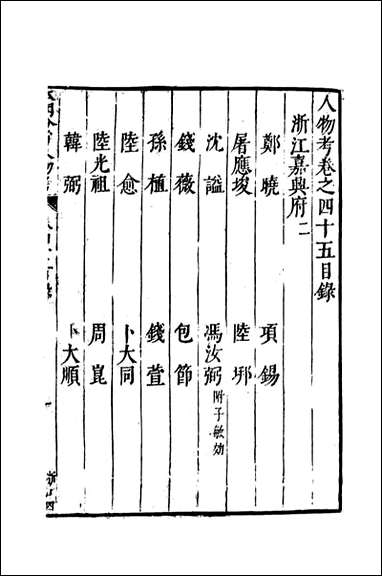 人物考卷之四十五目錄
浙江嘉興府二
鄭曉 項錫
屠應埈 陸邦
沈謐 馮汝弼附子敏効
錢薇 包節
孫植 錢萱
陸愈 卜大同
陸光祖 周崑
韓弼 卜大順